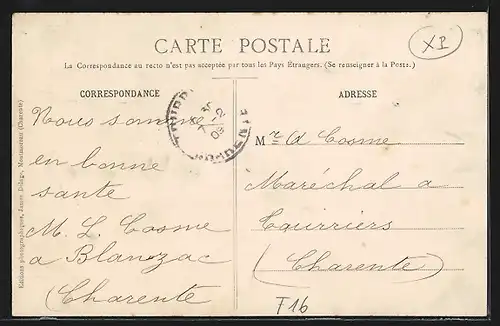 CARTE POSTALE
La Correspondance au recto n'est pas acceptée par tous les Pays Étrangers. (Se renseigner à la Poste.)
XI
CORRESPONDANCE
Nous somme
en bonne
sante
M. L. Cosme
a Blanzac
(Charente
ADRESSE
Mr A Cosme
Maréchal a
Tourriers
(Charente)
T16
Editions photographiques,
(Charente)